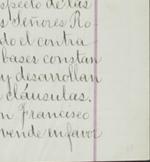 specto de las
s Señores Ro
do el contra
bases constan
y desarrollan
cláusulas.
n Francisco
vende en favor